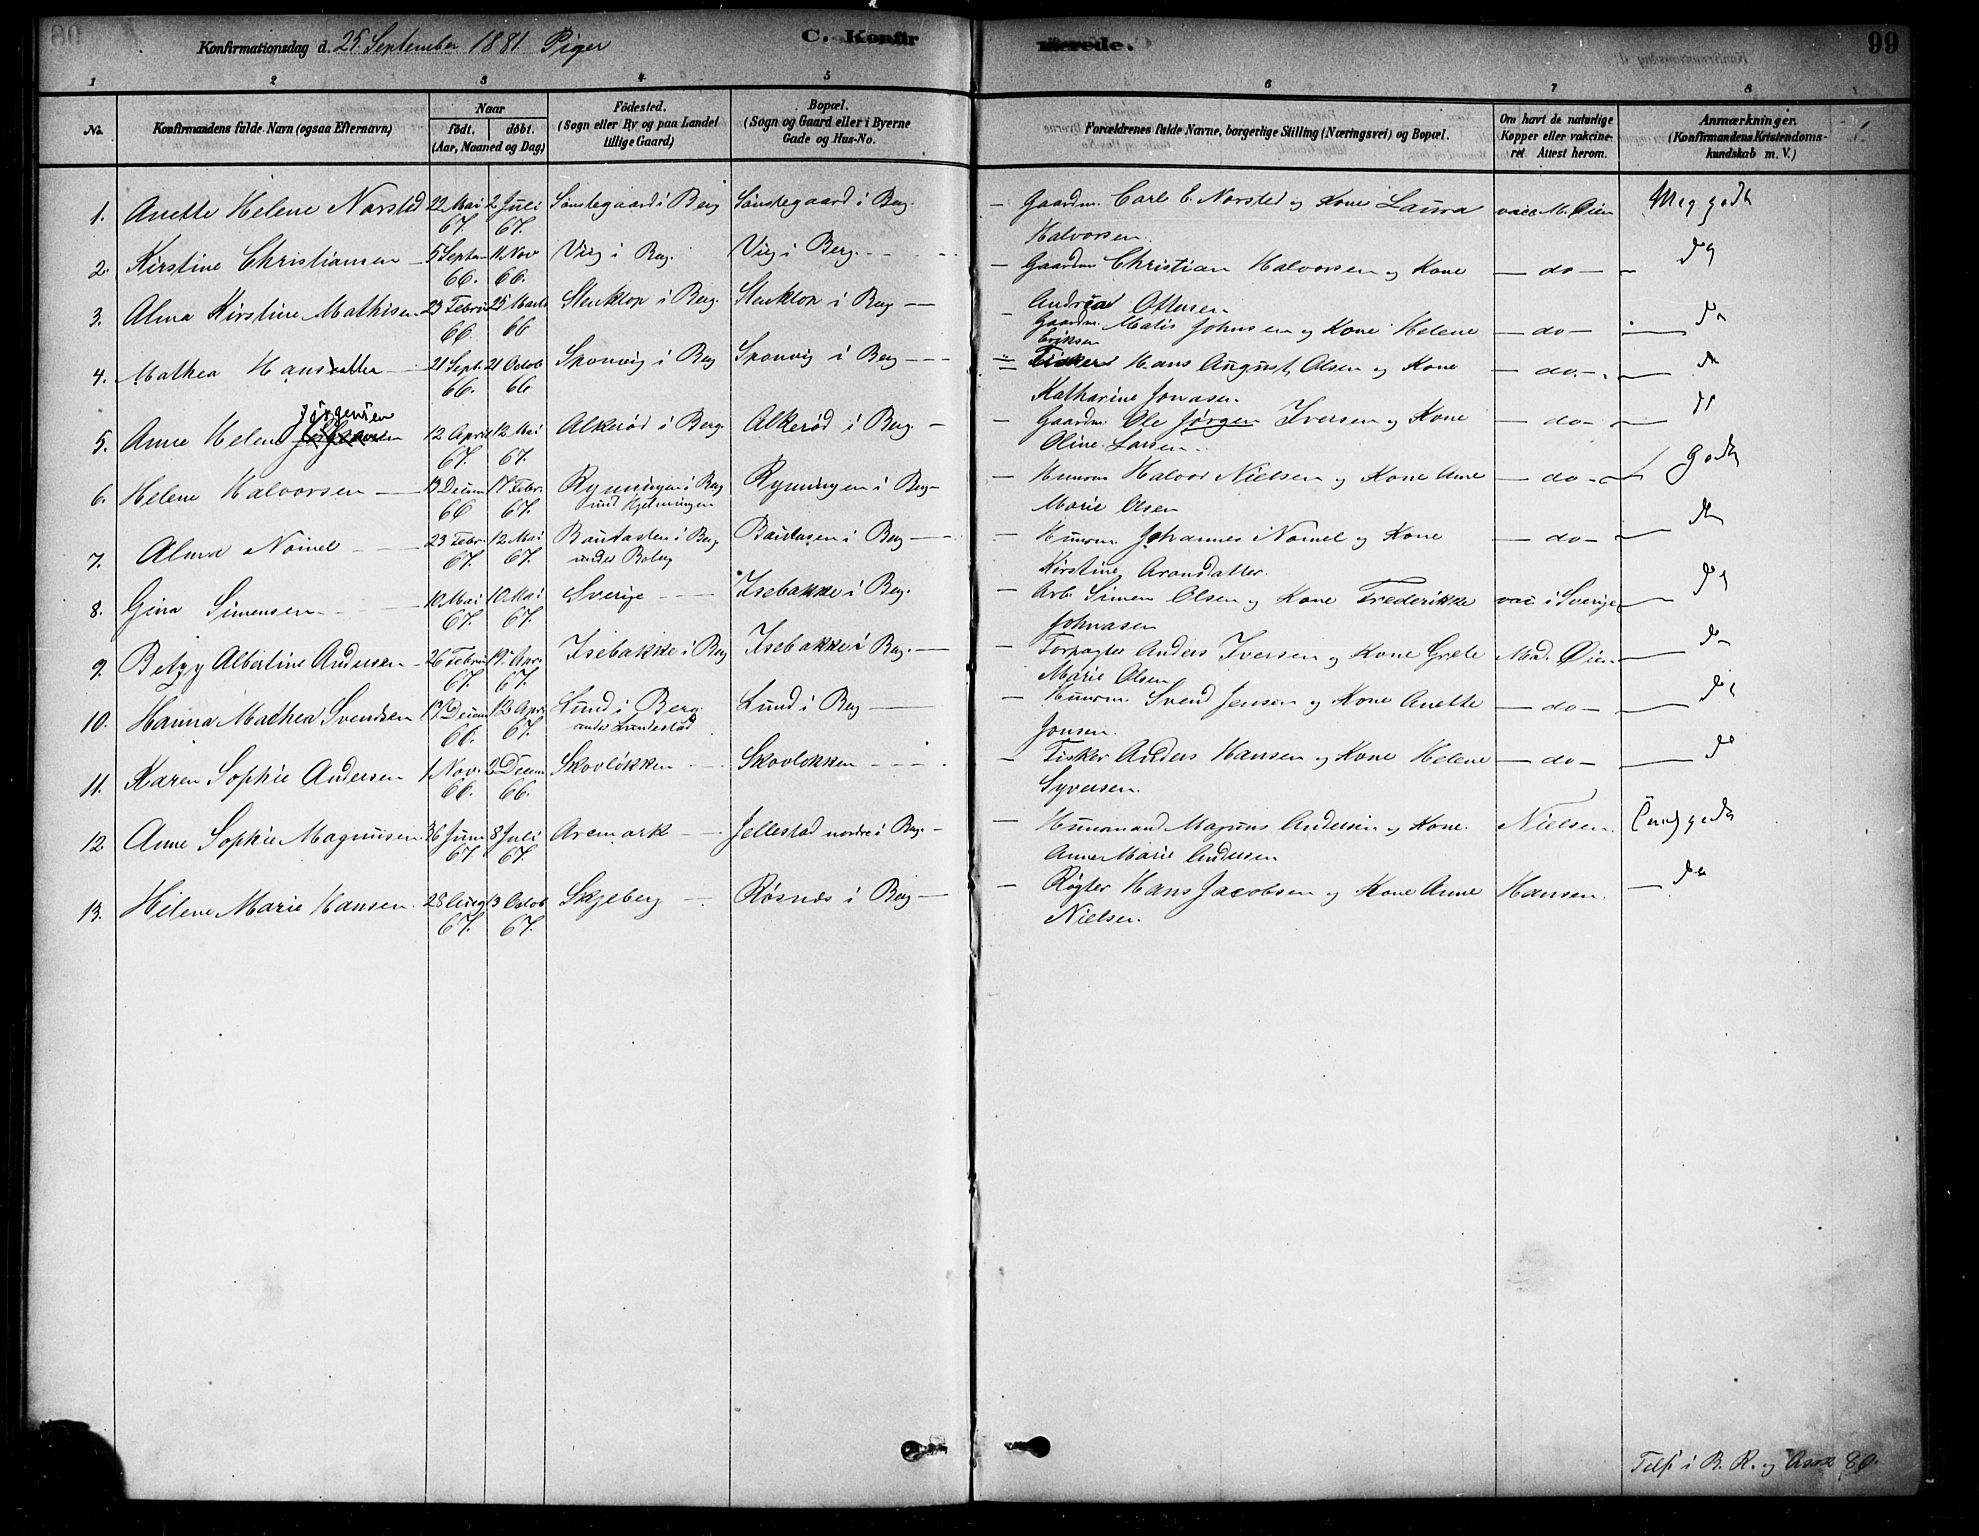 Konfirmationsdag d. 25 September 1881. Piger C. Konfirmerede. 99
1 2 3 4 5 6 7 8
No. Konfirmandens fulde Navn (ogsaa Efternavn) Naar født. døbt. (Aar, Maaned og Dag) Fødested. (Sogn eller By og paa Landet tillige Gaard) Bopæl. (Sogn og Gaard eller i Byerne Gade og Hus-No. Forældrenes fulde Navne, borgerlige Stilling (Næringsvei) og Bopæl. Om havt de naturlige Kopper eller vakcineret. Attest herom. Anmærkninger. (Konfirmandens Kristendomskundskab m. V.)
1. Anette Helene Norsted 22 Mai 67. 2 Juli 67. Sønstegaard i Berg Sønstegaard i Berg. – Gaardm. Carl E. Norsted og Kone Laura Halvorsen. vacc. M. Øien Meg godt
2. Kirstine Christiansen 5 Septem 66. 11 Nov 66. Vig i Berg. Vig i Berg. – Gaardm Christian Halvorsen og Kone Andrea Ottersen – do –
3. Alma Kirstine Mathisen 23 Febru 66. 25 Marts 66 Stenklop i Berg. Stenklop i Berg – Gaardm. Matis Johnsen og Kone Helene Eriksen – do –
4. Mathea Hansdatter 21 Sept. 66. 21 Octob 66. Sponvig i Berg Sponvig i Berg – Fisker Hans August Olsen og Kone Katharine Jonasen. – do. –
5. Anne Helene Jörgensen 12 April 67. 12 Mai 67. Alkerød i Berg. Alkerød i Berg. – Gaardm. Ole Jørgen Iversen og Kone Oline Larsen. – do –
6. Helene Halvorsen 13 Decem 66 17 Febr. 67. Rynningen i Berg und Hjelmungen Rynningen i Berg – Husm Halvor Nielsen og Kone Anne Marie Olsen – do – Godt
7. Alma Nomel 23 Febr. 67. 12 Mai 67. Bautasten i Berg under Boberg Bautasen i Berg – Husm. Johannes Nomel og Kone Kirstine Aronsdatter. – do –
8. Gina Simensen 10 Mai 67. 10 Mai 67. Sverige Isebakke i Berg. – Arb. Simen Olsen og Kone Frederikke Johnasen vac i Sverige
9. Betzy Albertine Andersen 26 Febru 67. 19 Apr. 67. Isebakke i Berg Isebakke i Berg. – Forpagter Anders Iversen og Kone Grete Marie Olsen. Mad. Øien
10. Hanna Mathea Svendsen 17 Decem 66. 12 Apr. 67. Lund i Berg under Lundestad Lund i Berg – Husm. Svend Jensen og Kone Anette Jonsen. – do –
11. Karen Sophie Andersen 1 Nov. 66. 2 Decem 66. Skovløkken Skovløkken – Fisker Anders Hansen og Kone Helene Syversen. – do –
12 Anne Sophie Magnusen. Juni 67. 8 Juli 67. Aremark Jellestad nordre i Berg. – Husmand Magnus Andersen og Kone Anne Marie Andersen Nielsen
13. Helene Marie Hansen. 28 Aug 67. 13 Octob 67. Skjeberg Røsnes i Berg – Røgter Hans Jacobsen og Kone Anne Nielsen. Hansen.